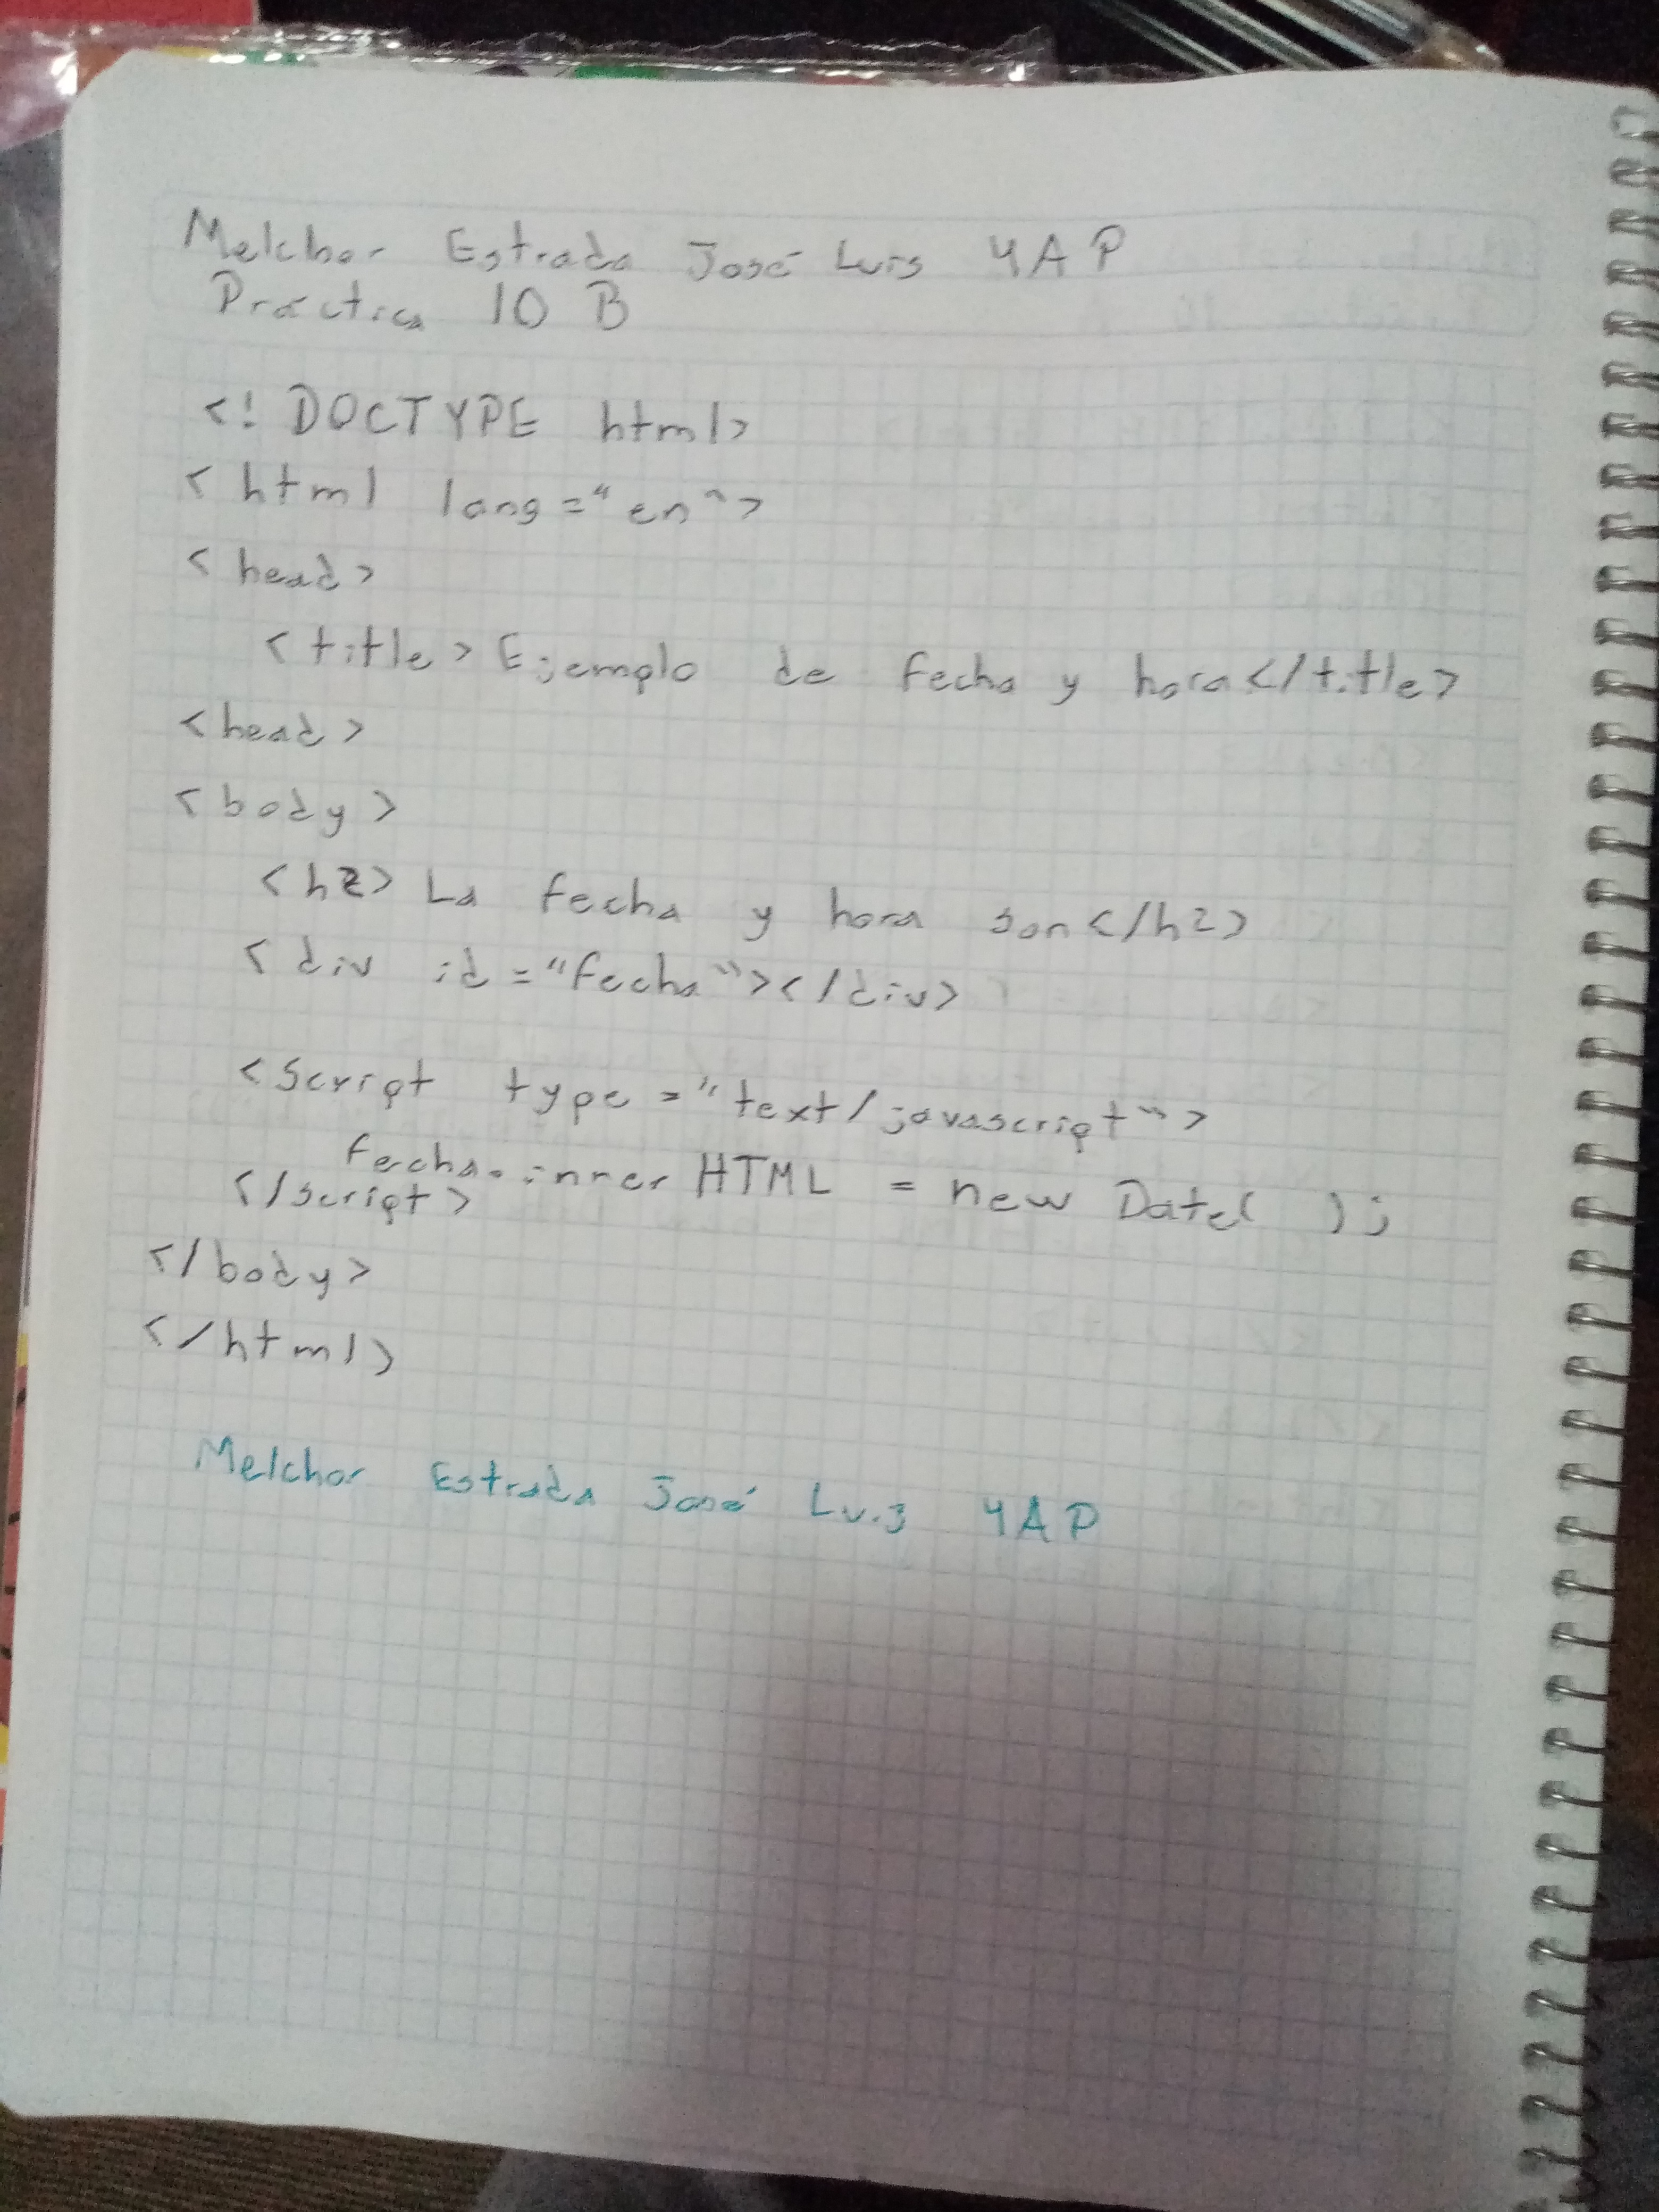 Melchor Estrada José Luis 4AP
Práctica 10 B
<! DOCTYPE html>
<html lang="en">
<head>
<title>Ejemplo de fecha y hora</title>
<head>
<body>
<h2>La fecha y hora son</h2>
<div id="fecha"></div>
<script type="text/javascript">
fecha.innerHTML = new Date( );
</script>
</body>
</html>
Melchor Estrada José Luis 4AP